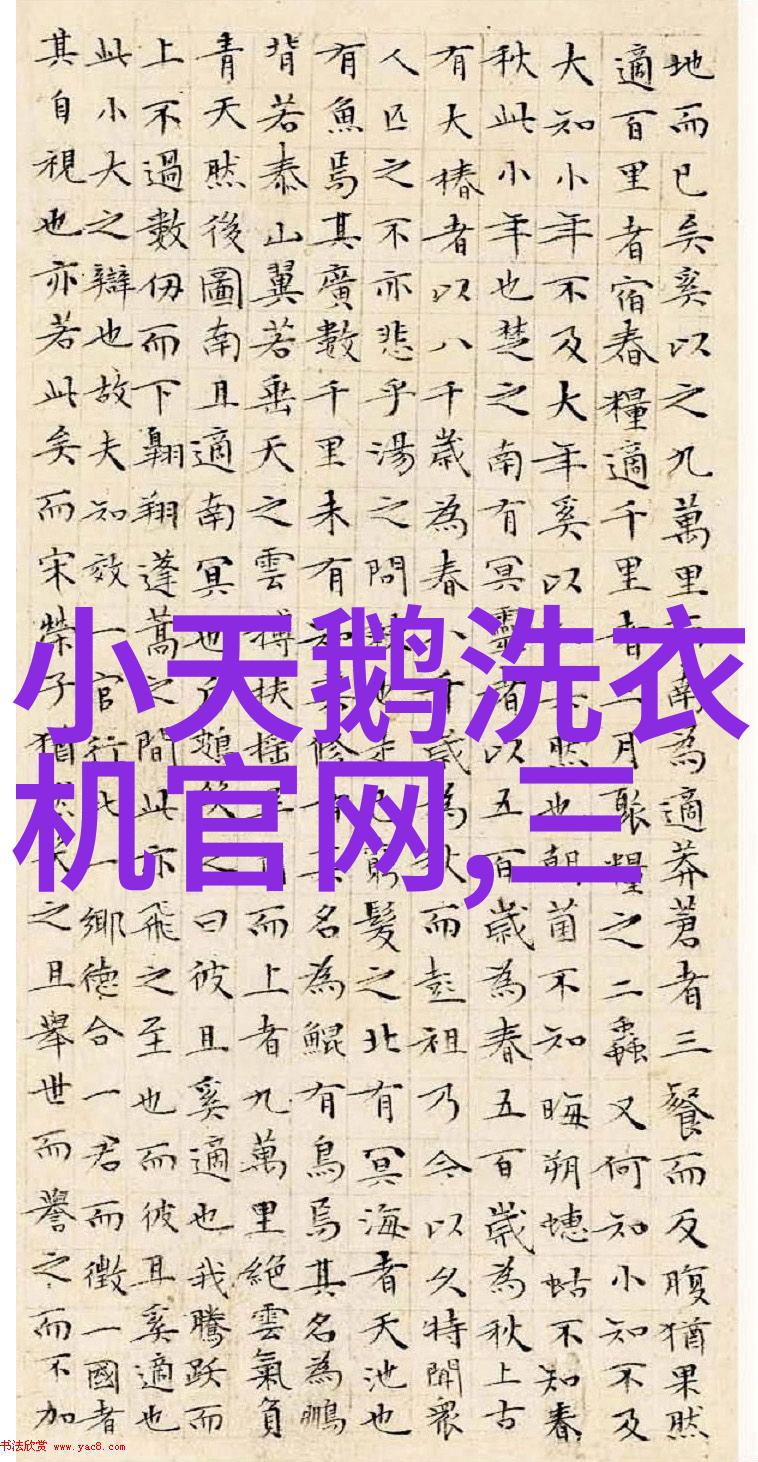 地而已矣奚以之九萬里而南為適莽蒼者三餐而反腹猶果然
適百里者宿舂糧適千里者月聚糧之二蟲又何知小知不及
大知小年不及大年奚以然也朝菌不知晦朔蟪蛄不知春
秋此小年也楚之南有冥靈者以五百歲為春五百歲為秋上古
有大椿者以八千歲為春八千歲為秋而彭祖乃今以久特聞衆
人匹之不亦悲乎湯之問也是已窮髮之北有冥海者天池也
有魚焉其廣數千里未有知其修者其名為鯤有鳥焉其名為鵬
背若泰山翼若垂天之雲摶扶搖羊角而上者九萬里絕雲氣負
青天然後圖南且適南冥也斥鴳笑之曰彼且奚適也我騰躍而
上不過數仞而下翱翔蓬蒿之間此亦飛之至也而彼且奚適也
此小大之辯也故夫知效一官行比一鄉德合一君而徵一國者
其自視也亦若此矣而宋榮子猶然笑之且舉世而譽之而不加
小天鹅洗衣
机官网,三
书法欣赏 www.yac8.com